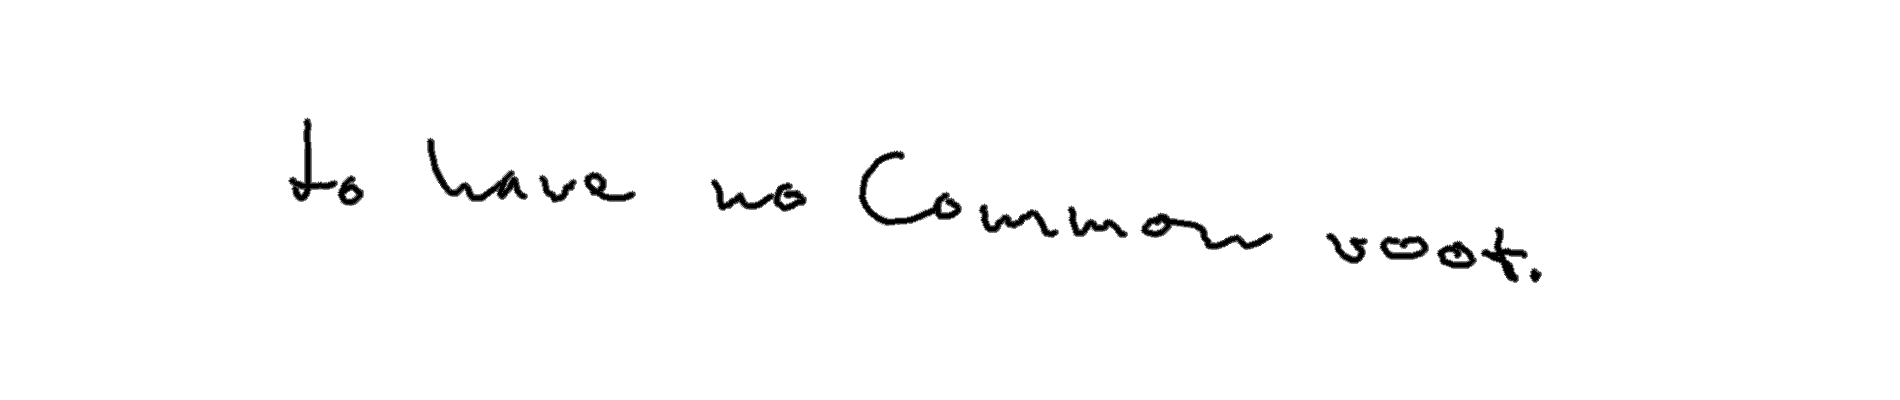 to have no Common root.